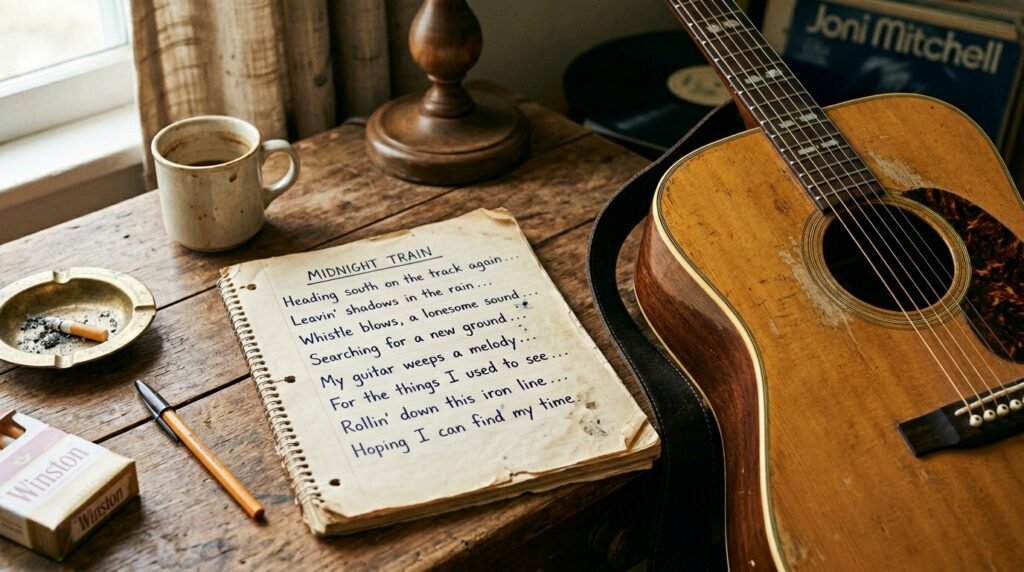 Joni Mitchell
MIDNIGHT TRAIN
Heading south on the track again...
Leavin' shadows in the rain...
Whistle blows, a lonesome sound...
Searching for a new ground...
My guitar weeps a melody...
For the things I used to see...
Rollin' down this iron line....
Hoping I can find my time.
Winston
Winston